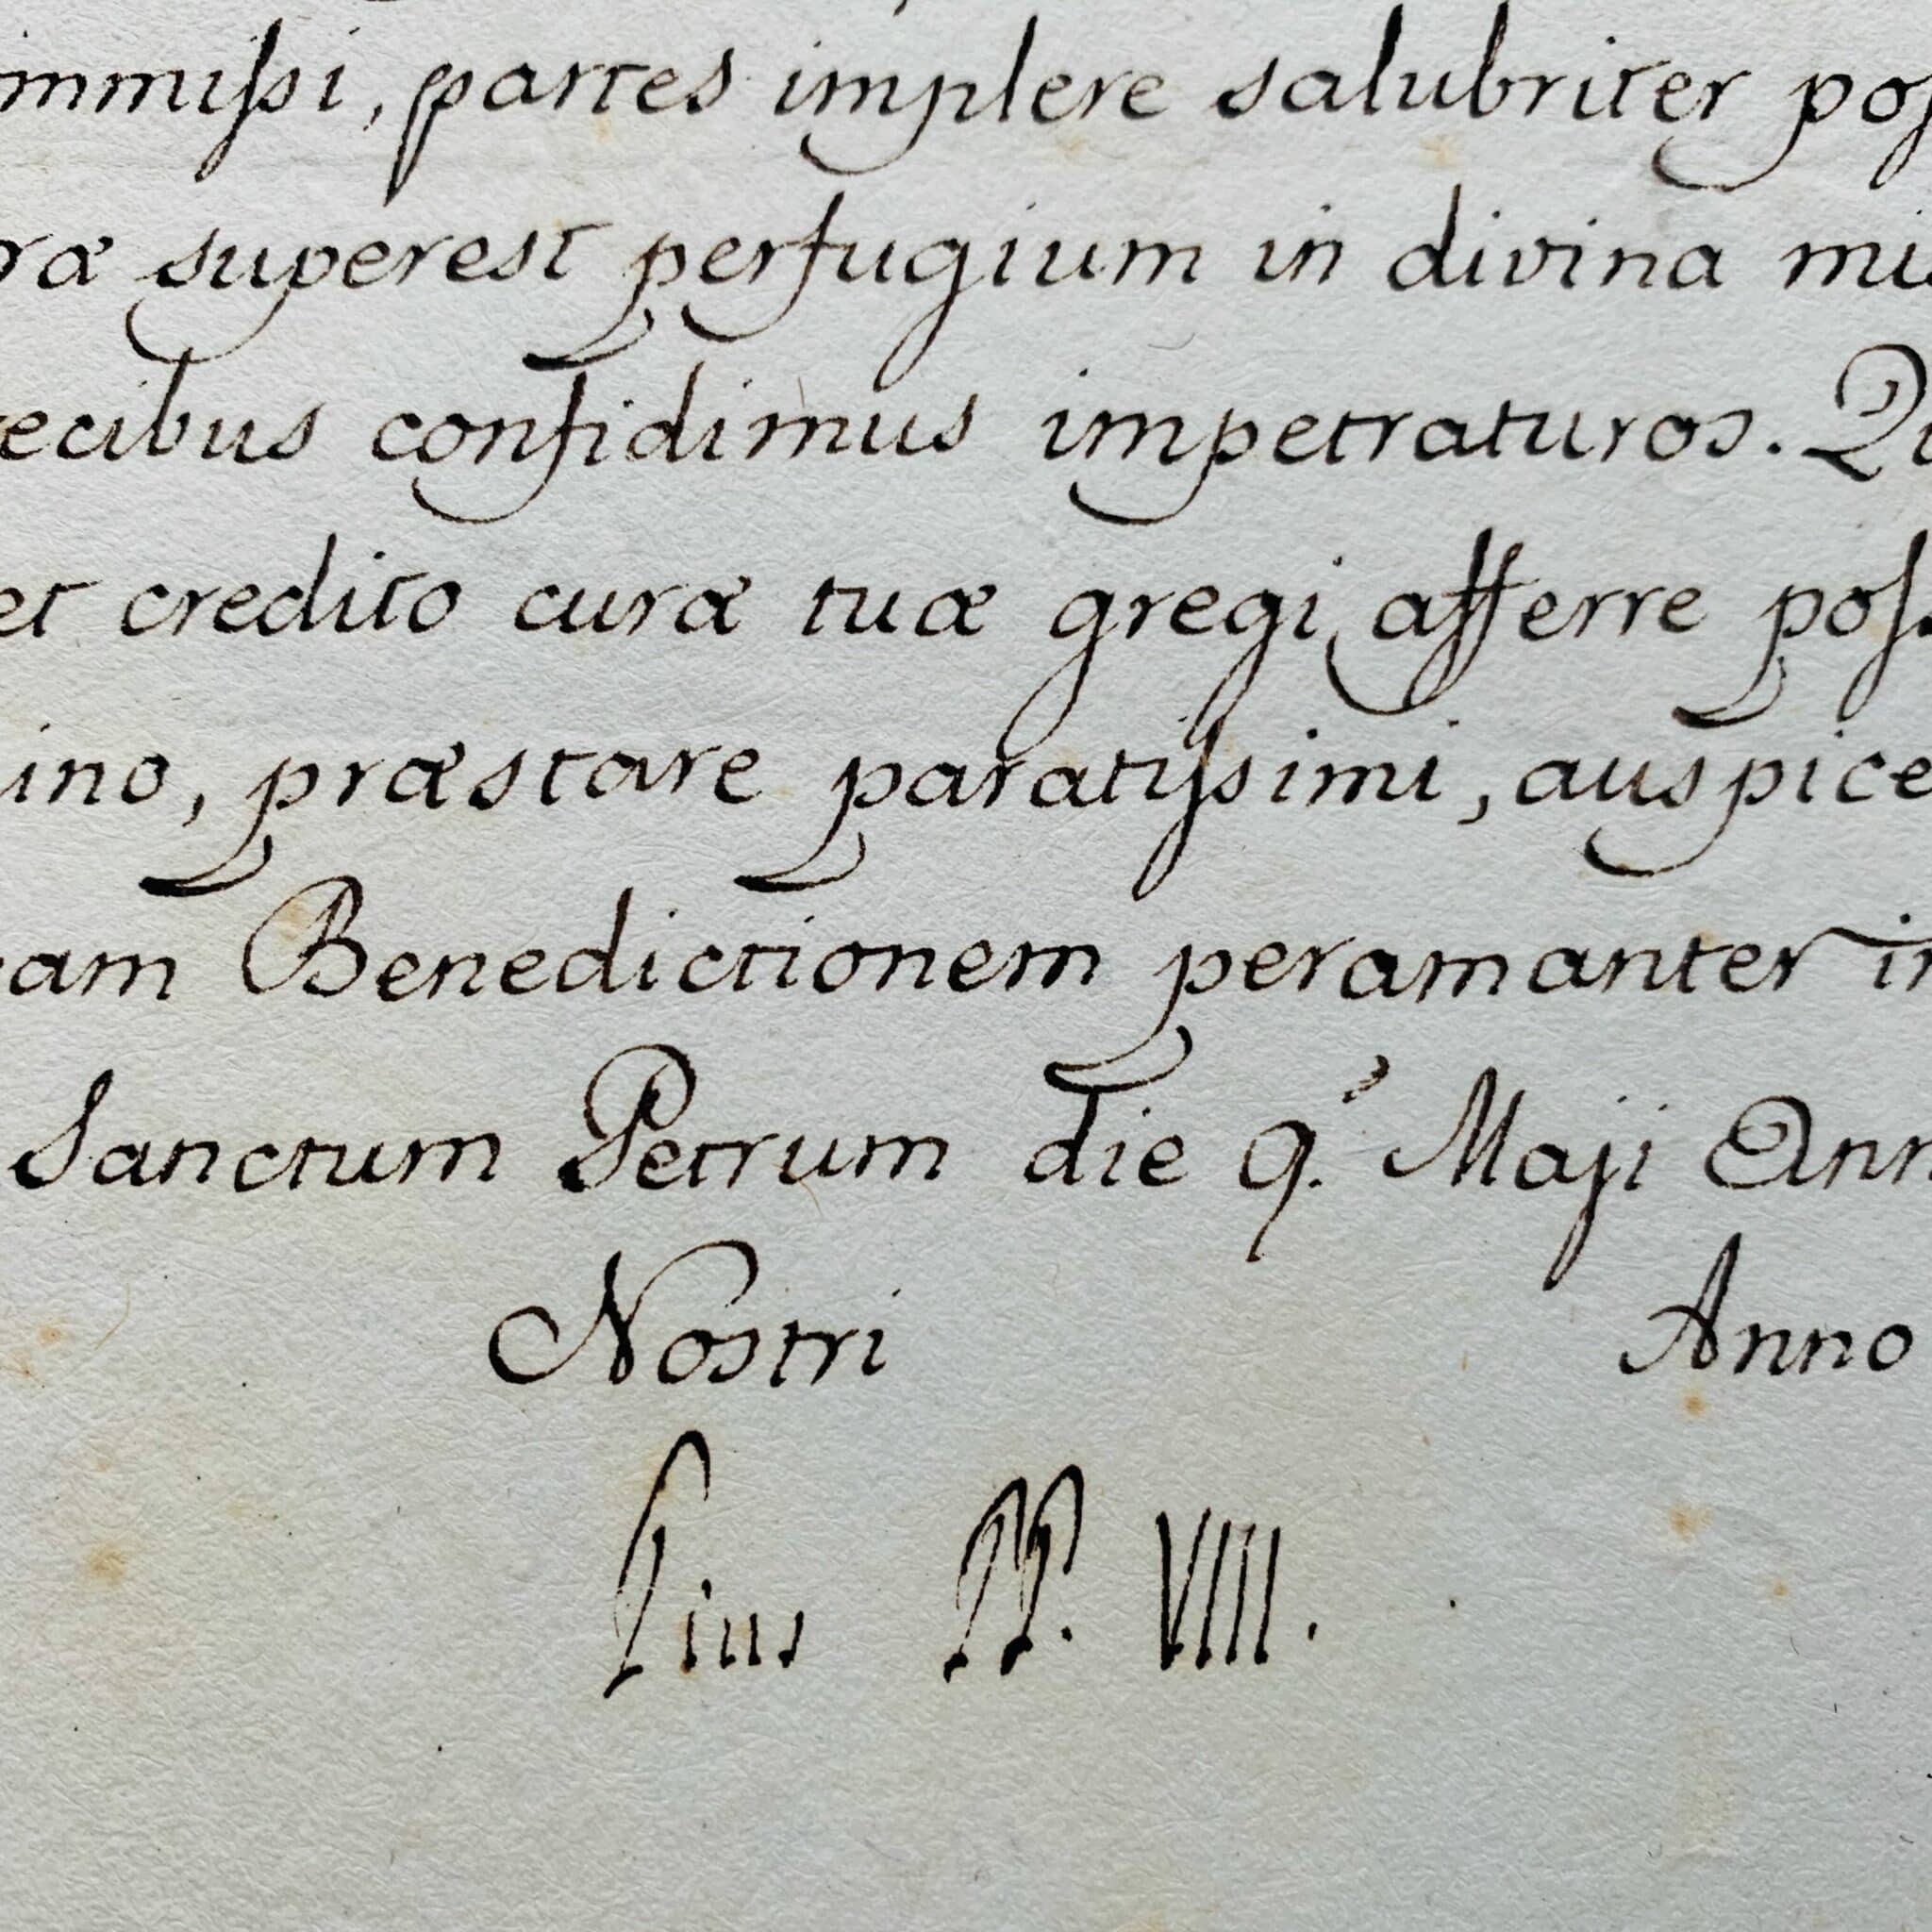 mmissi, partes implere salubriter pos
ræ superest perfugium in divina mi
ecibus confidimus impetraturos. Qu
et credito curæ tuæ gregi afferre poss
ino, præstare paratissimi, auspice
am Benedictionem peramanter in
Sanctum Petrum die 9.ª Maji Ann
Nostri Anno
Pius PP. VIII.